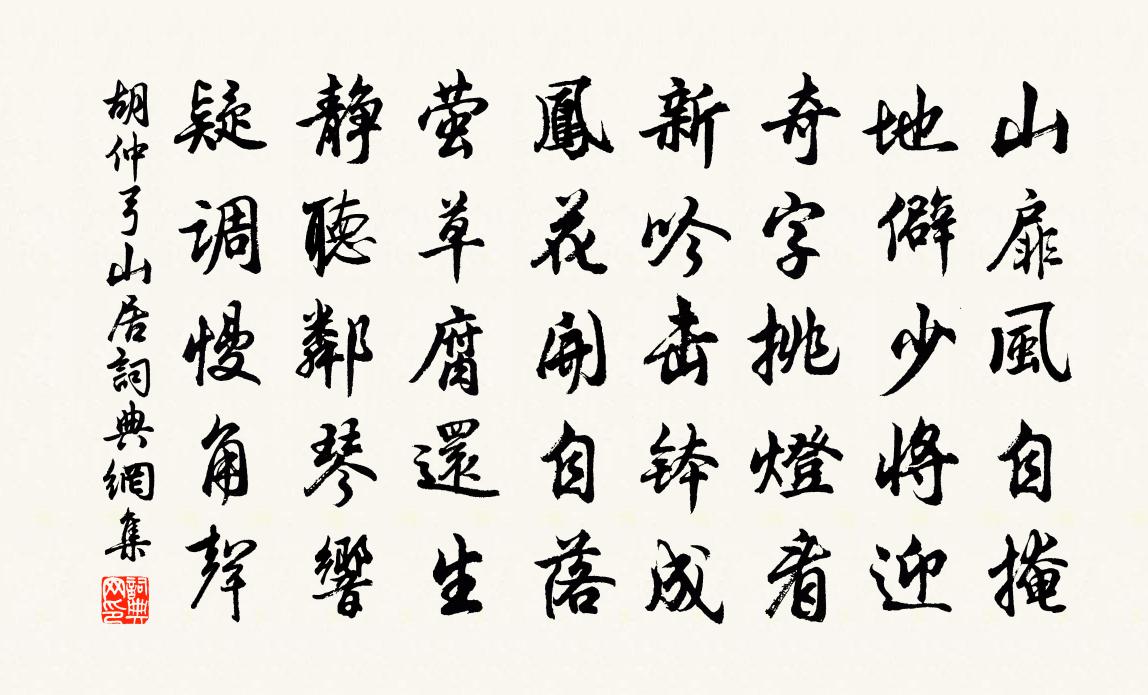 山扉風自掩
地僻少將迎
奇字挑燈看
新吟击鉢成
鳳花開自落
萤草腐還生
靜聽鄰琴響
疑调慢角聲
胡仲弓山居詞典網集
詞典網印